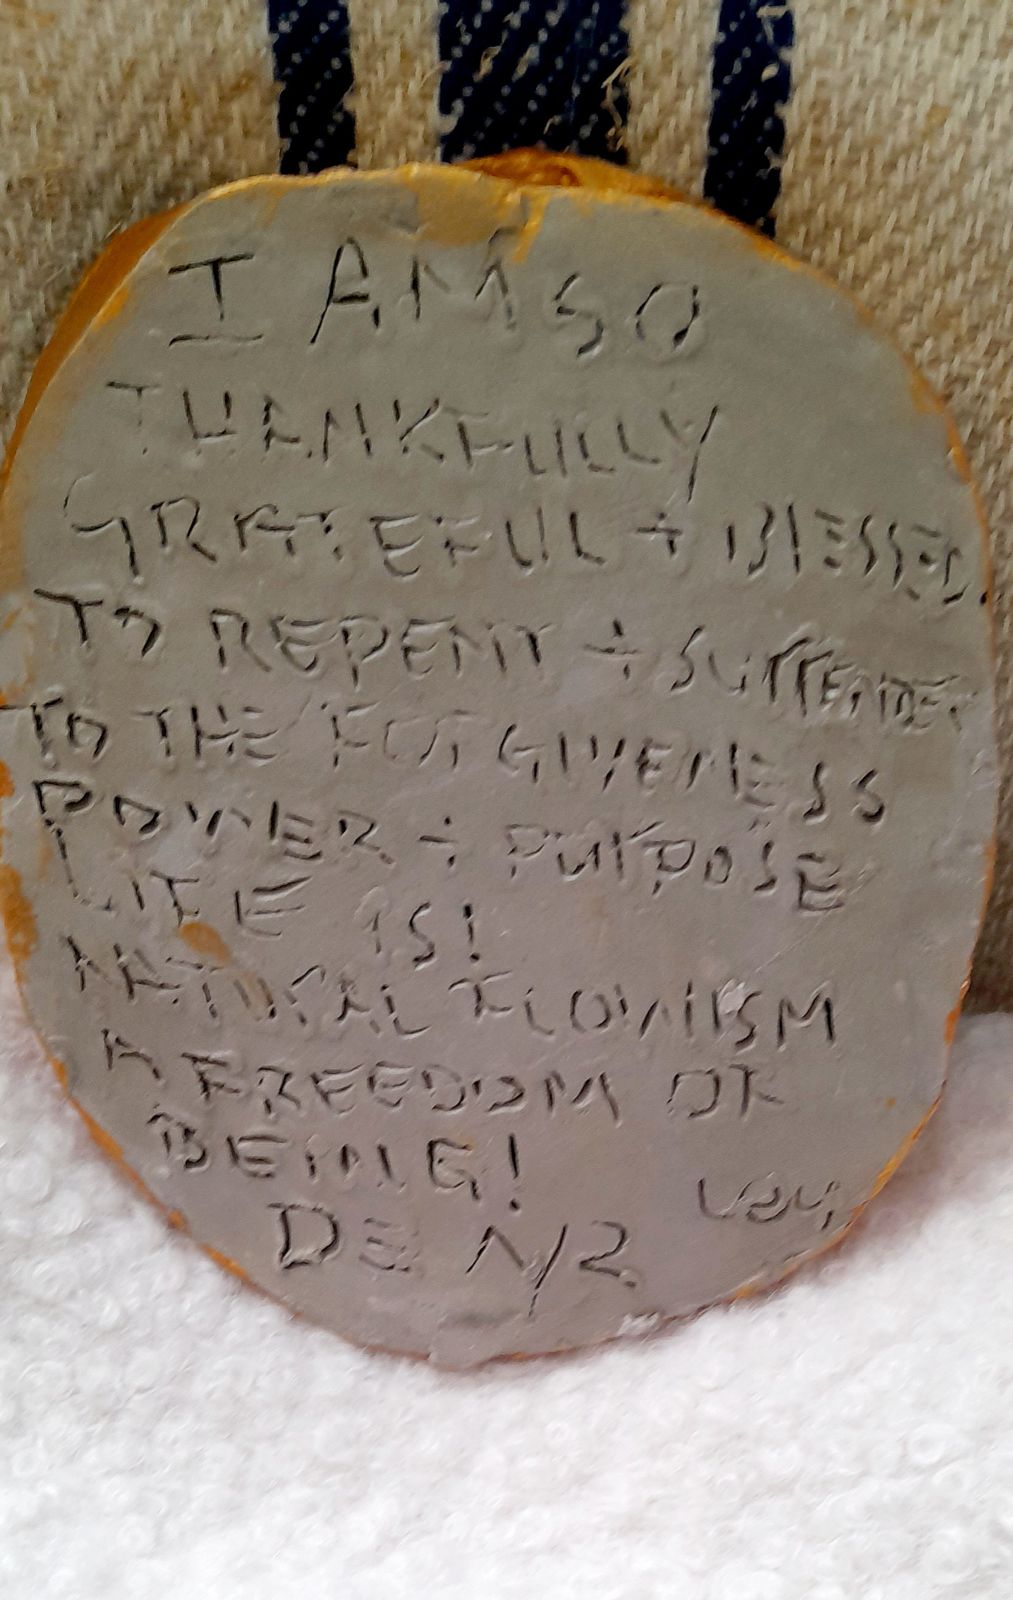 I AM SO
THANKFULLY
GRATEFUL + BLESSED
TO REPENT + SURRENDER
TO THE FORGIVENESS
POWER + PURPOSE
LIFE IS!
NATURAL FLOWISM
A FREEDOM OF
BEING!
DE